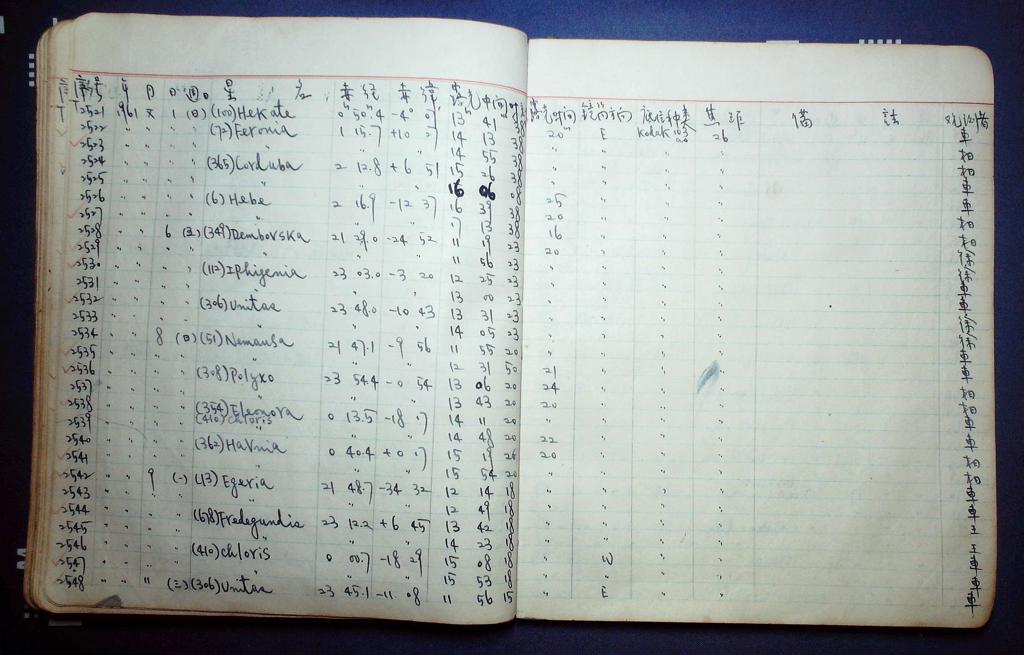 序号 年 月 日 週 星 名 赤 经 赤 纬 露光中间时刻 露光时间 镜筒方向 底片种类 焦距 備 註 观测者
2521 1961 X 1 (日) (100) Hekate 0 50.4 -4 07 13 41 38 20 E Kodak 103 26 車
2522 " " " " (72) Feronia 1 15.7 +10 27 14 13 38 " " " " 相
2523 " " " " " " 14 55 38 " " " " 相
2524 " " " " (365) Corduba 2 12.8 +6 51 15 26 38 " " " " 車
2525 " " " " " " 16 06 08 " " " " 車
2526 " " " " (6) Hebe 2 16.9 -12 37 16 39 38 25 " " " 車
2527 " " " " " " 17 13 38 20 " " " 相
2528 " " 6 (349) Dembovska 21 29.0 -24 52 11 19 23 16 " " "
2529 " " " " " " 11 56 23 20 " " "
2530 " " " " (112) Iphigenia 23 03.0 -3 20 12 25 23 " " " "
2531 " " " " " " 13 00 23 " " " "
2532 " " " " (306) Unitas 23 48.0 -10 43 13 31 23 " " " "
2533 " " " " " " 14 05 23 " " " "
2534 " " 8 (日) (51) Nemausa 21 47.1 -9 56 11 55 20 " " " "
2535 " " " " " " 12 31 50 " " " " 車
2536 " " " " (308) Polyxo 23 54.4 -0 54 13 06 20 21 " " " 車
2537 " " " " " " 13 43 20 24 " " " 相
2538 " " " " (354) Eleonora (410) Chloris 0 13.5 -18 07 14 11 20 20 " " " 相
2539 " " " " " " 14 48 20 " " " 車
2540 " " " " (362) Havnia 0 40.4 +0 07 15 19 26 22 " " " 車
2541 " " " " " " 15 54 20 20 " " " 相
2542 " " 9 (一) (13) Egeria 21 48.7 -34 32 12 14 18 " " " "
2543 " " " " " " 12 49 18 " " " " 車
2544 " " " " (678) Fredegundis 23 12.2 +6 45 13 42 18 " " " " 車
2545 " " " " " " 14 23 18 " " " " 王
2546 " " " " (410) Chloris 0 00.7 -18 29 15 08 18 " W " " 王
2547 " " " " " " 15 53 18 " " " " 車
2548 " " 11 (三) (306) Unitas 23 45.1 -11 08 11 56 15 " E " " 車